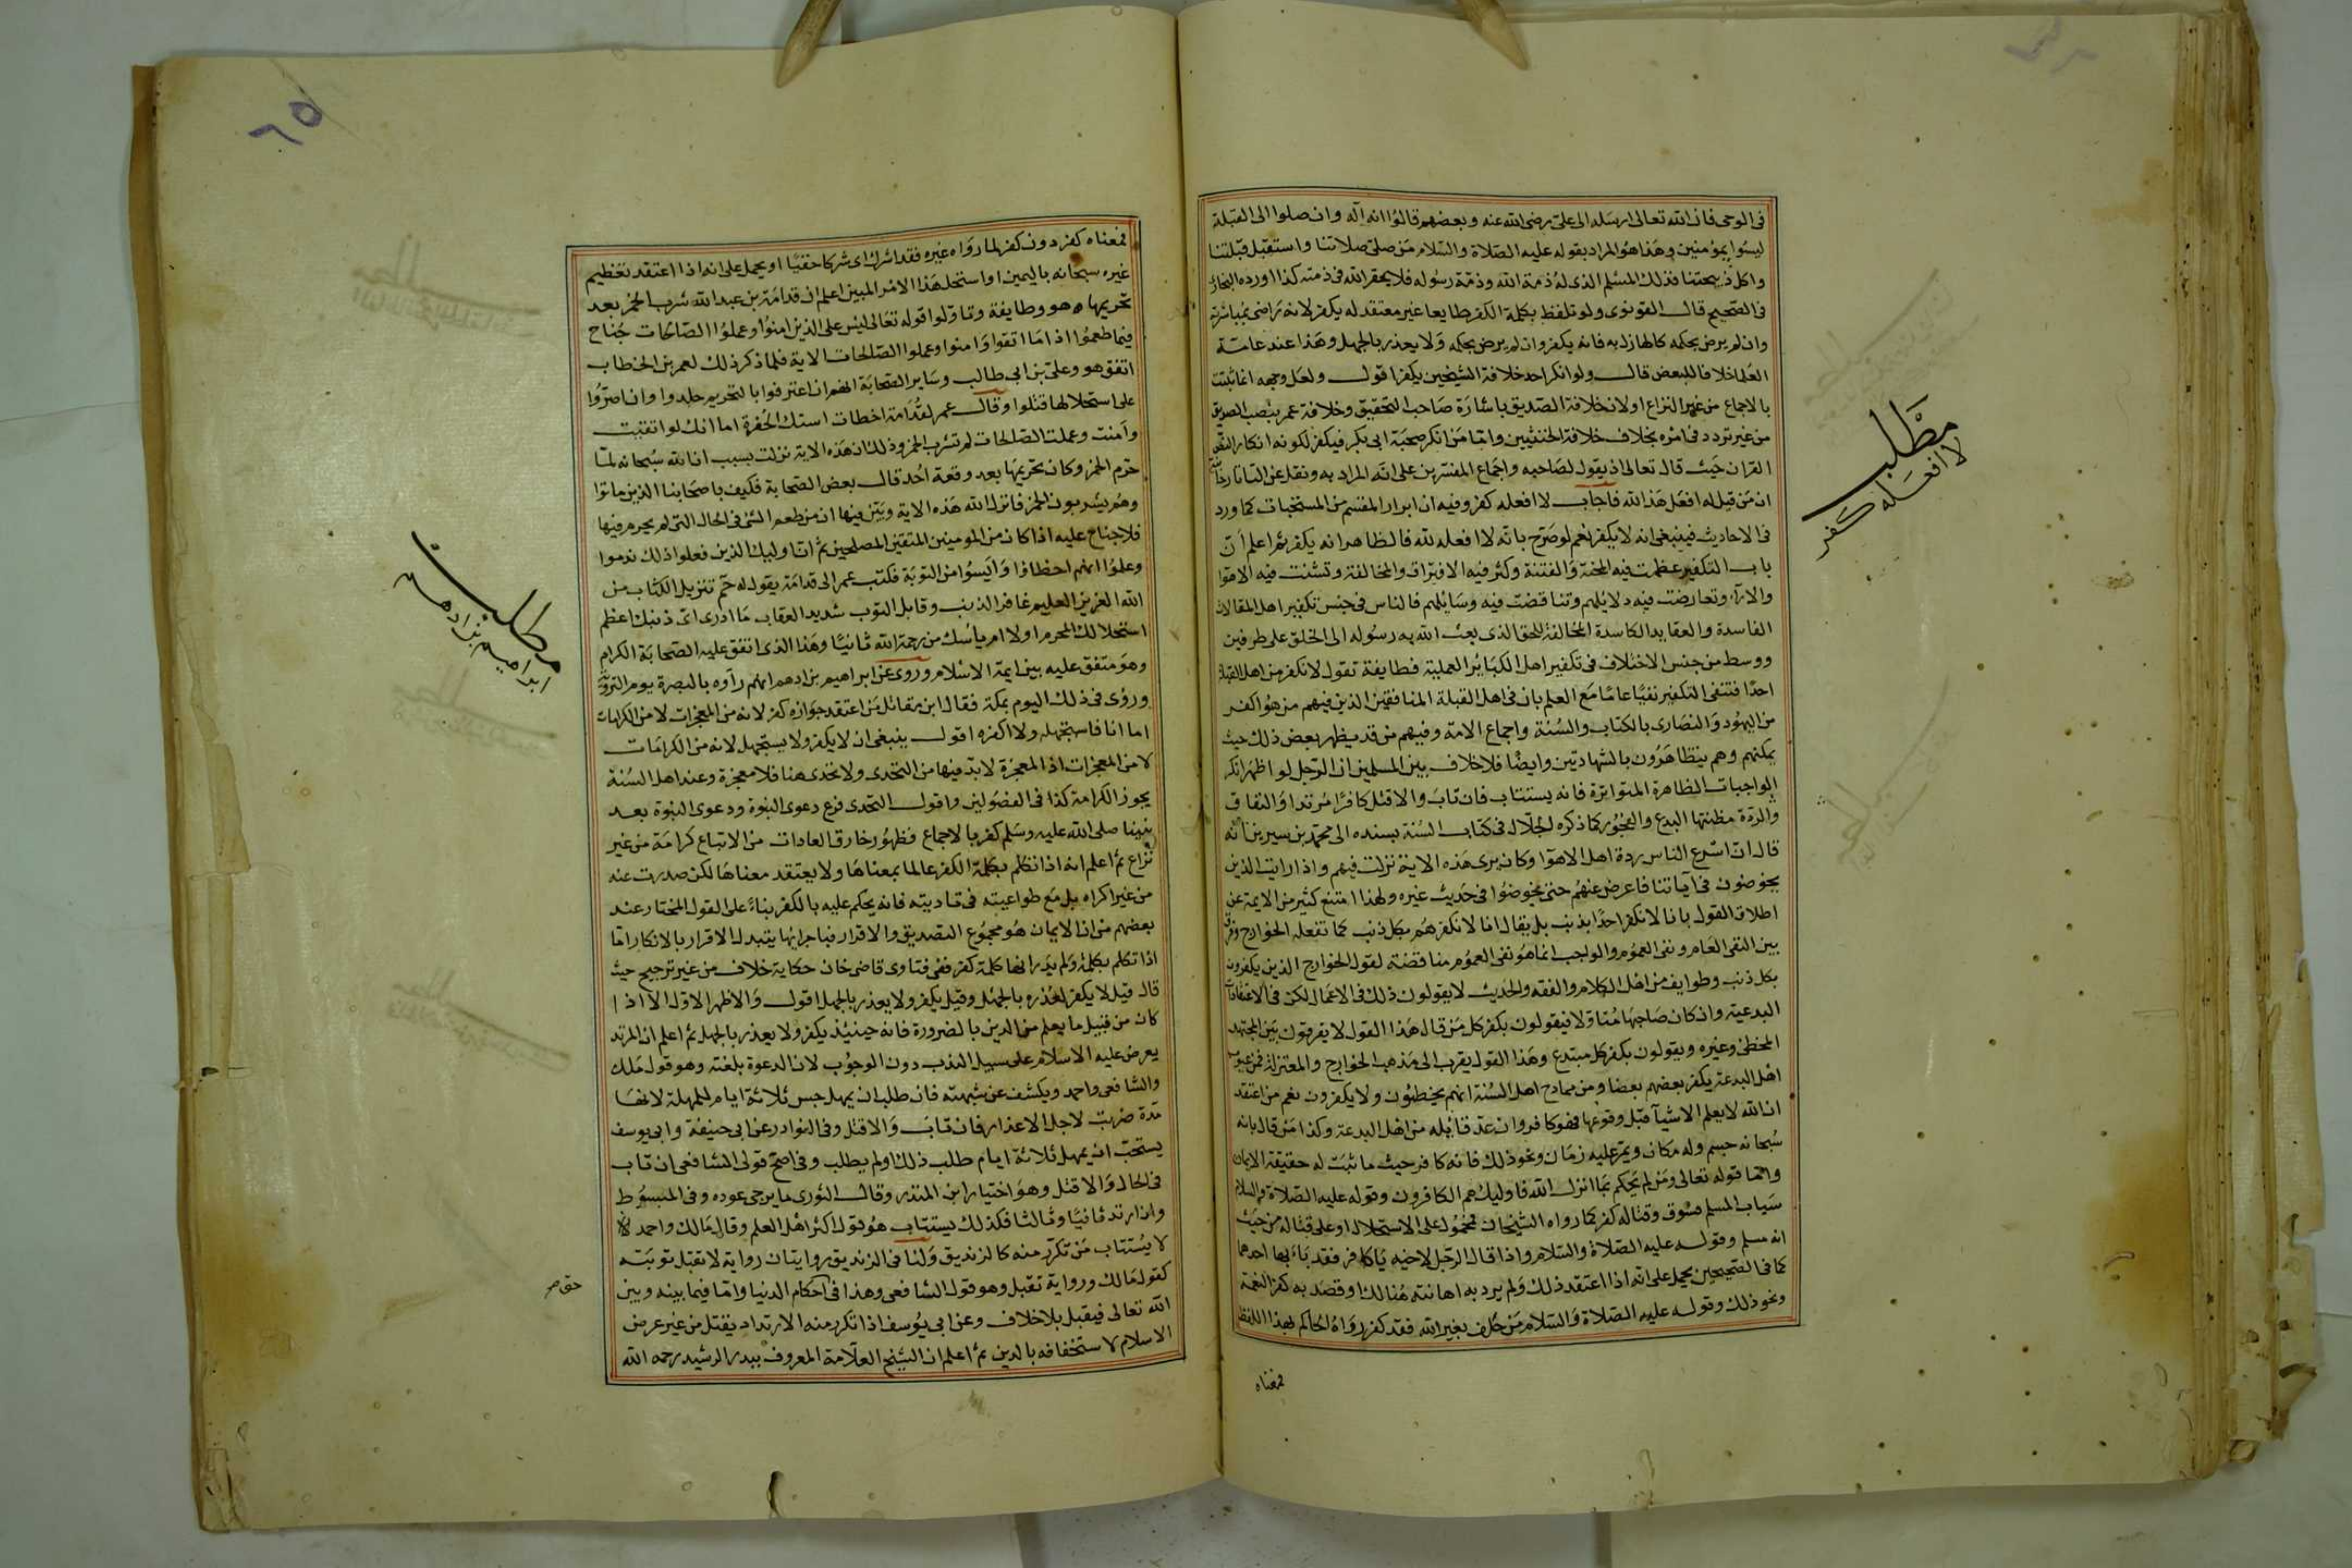 في الوحي فان الله تعالى ارسله الى علي رضى الله عنه وبعضهم قالوا انه اله وان صلوا الى القبلة
ليسوا بمؤمنين وهذا هو المراد بقوله عليه الصلاة والسلام من صلى صلاتنا واستقبل قبلتنا
واكل ذبيحتنا فذلك المسلم الذى له ذمة الله وذمة رسوله فلا يحقر الله في ذمته كذا اورده البخارى
في الصحيح قال القونوى ولو تلفظ بكلمة الكفر طايعا غير معتقد له يكفر لانه راضى بمباشرته
وان لم يرض بحكمه كالهازل به فانه يكفر وان لم يرض بحكمه ولا يعذر بالجهل وهذا عند عامة
العلما خلافا للبعض قال ولو انكر احد خلافة الشيخين يكفر اقول ولعل وجهه انما ثبتت
بالاجماع من غير النزاع او لان خلافة الصديق باشارة صاحب التحقيق وخلافة عمر بنصب الصديق
من غير تردد في امره بخلاف خلافة الختنين واما من انكر صحبة ابى بكر فيكفر لكونه انكار النص
القران حيث قال تعالى اذ يقول لصاحبه واجماع المفسرين على انه المراد به ونقل عن التاتارخانية
ان من قيل له افعل هذا لله فاجاب لا افعله كفر وفيه ان ابرار المقسم من المستحبات كما ورد
في الاحاديث فينبغى انه لا يكفر نعم لو صرح بانه لا افعله لله فالظاهر انه يكفر ثم اعلم ان
باب التكفير عظمت فيه المحنة والفتنة وكثر فيه الافتراق والمخالفة وتشتت فيه الاهوا
والاراء وتعارضت فيه دلايلهم وتناقضت فيه وسائلهم فالناس في جنس تكفير اهل المقالات
الفاسدة والعقايد الكاسدة المخالفة للحق الذى بعث الله به رسوله الى الخلق على طرفين
ووسط من جنس الاختلاف في تكفير اهل الكبائر العملية فطايفة تقول لا نكفر من اهل القبلة
احدا فتنفى التكفير نفيا عاما مع العلم بان في اهل القبلة المنافقين الذين فيهم من هو اكفر
من اليهود والنصارى بالكتاب والسنة واجماع الامة وفيهم من قد يظهر بعض ذلك حيث
يمكنهم وهم يتظاهرون بالشهادتين وايضا فلا خلاف بين المسلمين ان الرجل لو اظهر انكار
الواجبات الظاهرة المتواترة فانه يستتاب فان تاب والا قتل كافرا مرتدا والنفاق
والردة مظنتها البدع والفجور كما ذكره الخلال في كتاب السنة بسنده الى محمد بن سيرين انه
قال ان اسرع الناس ردة اهل الاهوا وكان يرى هذه الاية نزلت فيهم واذا رايت الذين
يخوضون في اياتنا فاعرض عنهم حتى يخوضوا في حديث غيره ولهذا امتنع كثير من الايمة عن
اطلاق القول بانا لا نكفر احدا بذنب بل يقال انا لا نكفرهم بكل ذنب كما تفعله الخوارج وفرق
بين النفى العام ونفى العموم والواجب انما هو نفى العموم مناقضة لقول الخوارج الذين يكفرون
بكل ذنب وطوايف من اهل الكلام والفقه والحديث لا يقولون ذلك في الاعمال لكن في الاعتقادات
البدعية وان كان صاحبها متاولا فيقولون بكفر كل من قال هذا القول لا يفرقون بين المجتهد
المخطئ وغيره ويقولون بكفر كل مبتدع وهذا القول يقرب الى مذهب الخوارج والمعتزلة فمن عيوب
اهل البدعة يكفر بعضهم بعضا ومن ممادح اهل السنة انهم يخطئون ولا يكفرون نعم من اعتقد
ان الله لا يعلم الاشيا قبل وقوعها فهو كافر وان عد قائله من اهل البدعة وكذا من قال بانه
سبحانه جسم وله مكان ويمر عليه زمان ونحو ذلك فانه كافر حيث ما ثبت له حقيقة الايمان
واما قوله تعالى ومن لم يحكم بما انزل الله فاوليك هم الكافرون وقوله عليه الصلاة والسلام
سباب المسلم فسوق وقتاله كفر كما رواه الشيخان فمحمول على الاستحلال او على قتاله من حيث
انه مسلم وقوله عليه الصلاة والسلام واذا قال الرجل لاخيه يا كافر فقد باء بها احدهما
كما في الصحيحين يحمل على انه اذا اعتقد ذلك ولم يرد به اهانته هنالك او قصد به كفر النعمة
ونحو ذلك وقوله عليه الصلاة والسلام من حلف بغير الله فقد كفر رواه الحاكم بهذا اللفظ
فمعناه
مطلب
لا افعله كفر
٦٥
فمعناه كفر دون كفر لما رواه غيره فقد اشرك اى شركا خفيا او يحمل على انه اذا اعتقد تعظيم
غيره سبحانه باليمين او استحل هذا الامر المبين اعلم ان قدامة بن عبد الله شرب الخمر بعد
تحريمها هو وطايفة وتاولوا قوله تعالى ليس على الذين امنوا وعملوا الصالحات جناح
فيما طعموا اذا ما اتقوا وامنوا وعملوا الصالحات الاية فلما ذكر ذلك لعمر بن الخطاب
اتفق هو وعلى بن ابى طالب وساير الصحابة انهم ان اعترفوا بالتحريم جلدوا وان اصروا
على استحلالها قتلوا وقال عمر لقدامة اخطات استك الحفرة اما انك لو اتقيت
وامنت وعملت الصالحات لم تشرب الخمر وذلك ان هذه الاية نزلت بسبب ان الله سبحانه لما
حرم الخمر وكان تحريمها بعد وقعة احد قال بعض الصحابة فكيف باصحابنا الذين ماتوا
وهم يشربون الخمر فانزل الله هذه الاية وبين فيها ان من طعم الشئ في الحال التى لم يحرم فيها
فلا جناح عليه اذا كان من المومنين المتقين المصلحين ثم ان اوليك الذين فعلوا ذلك ندموا
وعلموا انهم اخطاوا وايسوا من التوبة فكتب عمر الى قدامة يقول له حم تنزيل الكتاب من
الله العزيز العليم غافر الذنب وقابل التوب شديد العقاب ما ادرى اى ذنبك اعظم
استحلالك المحرم اولا ام ياسك من رحمة الله ثانيا وهذا الذى اتفق عليه الصحابة الكرام
وهو متفق عليه بين ايمة الاسلام وروى عن ابراهيم بن ادهم انهم راوه بالبصرة يوم التروية
وروى في ذلك اليوم بمكة فقال ابن مقاتل من اعتقد جوازه كفر لانه من المعجزات لا من الكرامات
اما انا فاستجهله ولا اكفره اقول ينبغى ان لا يكفر ولا يستجهل لانه من الكرامات
لا من المعجزات اذ المعجزة لا بد فيها من التحدى ولا تحدى هنا فلا معجزة وعند اهل السنة
يجوز الكرامة كذا في الفصولين واقول التحدى فرع دعوى النبوة ودعوى النبوة بعد
نبينا صلى الله عليه وسلم كفر بالاجماع فظهور خارق العادات من الاتباع كرامة من غير
نزاع ثم اعلم انه اذا تكلم بكلمة الكفر عالما بمعناها ولا يعتقد معناها لكن صدرت عنه
من غير اكراه بل مع طواعيته في تاديته فانه يحكم عليه بالكفر بناء على القول المختار عند
بعضهم من ان الايمان هو مجموع التصديق والاقرار فباجرائها يتبدل الاقرار بالانكار اما
اذا تكلم بكلمة ولم يدر انها كلمة كفر ففى فتاوى قاضى خان حكاية خلاف من غير ترجيح حيث
قال قيل لا يكفر لعذره بالجهل وقيل يكفر ولا يعذر بالجهل اقول والاظهر الاول الا اذا
كان من قبيل ما يعلم من الدين بالضرورة فانه حينئذ يكفر ولا يعذر بالجهل ثم اعلم ان المرتد
يعرض عليه الاسلام على سبيل الندب دون الوجوب لان الدعوة بلغته وهو قول ملك
والشافعى واحمد ويكشف عن شبهته فان طلب ان يمهل حبس ثلاثة ايام للمهلة لانها
مدة ضربت لاجل الاعذار فان تاب والا قتل وفى النوادر عن ابى حنيفة وابى يوسف
يستحب ان يمهل ثلاثة ايام طلب ذلك او لم يطلب وفى اصح قولى الشافعى ان تاب
في الحال والا قتل وهو اختيار ابن المنذر وقال الثورى ما يرجى عوده وفى المبسوط
وان ارتد ثانيا وثالثا فكذلك يستتاب هو قول اكثر اهل العلم وقال مالك واحمد
لا يستتاب من تكرر منه كالزنديق ولنا في الزنديق روايتان رواية لا تقبل توبته
كقول مالك ورواية تقبل وهو قول الشافعى وهذا في احكام الدنيا واما فيما بينه وبين
الله تعالى فيقبل بلا خلاف وعن ابى يوسف اذا تكرر منه الارتداد يقتل من غير عرض
الاسلام لاستخفافه بالدين ثم اعلم ان الشيخ العلامة المعروف ببدر الرشيد رحمه الله
مطلب
ابراهيم بن ادهم